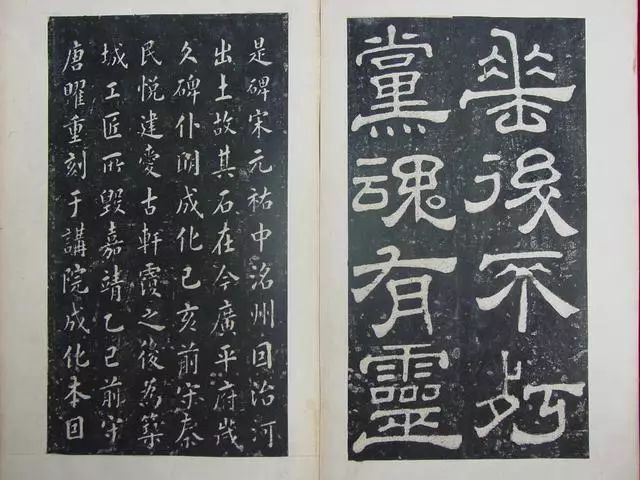 垂後不朽
黨魂有靈
是碑宋元祐中洺州因治河
出土故其石在今廣平府歲
久碑仆明成化己亥前守秦
民悅建愛古軒覆之後為築
城工匠所毀嘉靖乙巳前守
唐曜重刻于講院成化末因